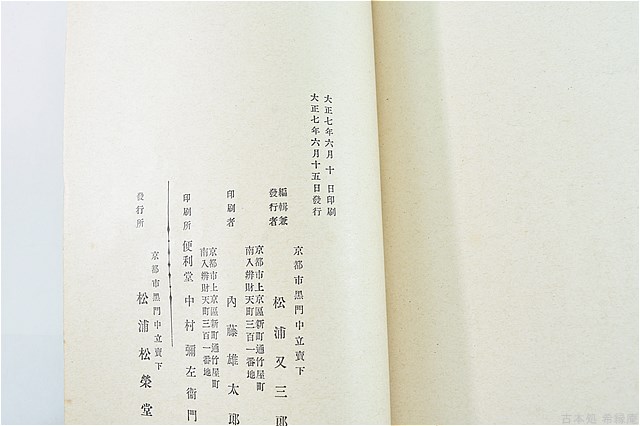 大正七年六月十日印刷
大正七年六月十五日發行
京都市黑門中立賣下
編輯兼
發行者
松浦又三郎
京都市上京區新町通竹屋町
南入辨財天町三百一番地
印刷者
內藤雄太郎
京都市上京區新町通竹屋町
南入辨財天町三百一番地
印刷所
便利堂 中村彌左衞門
發行所
京都市黑門中立賣下
松浦松榮堂
古本処 希録庵